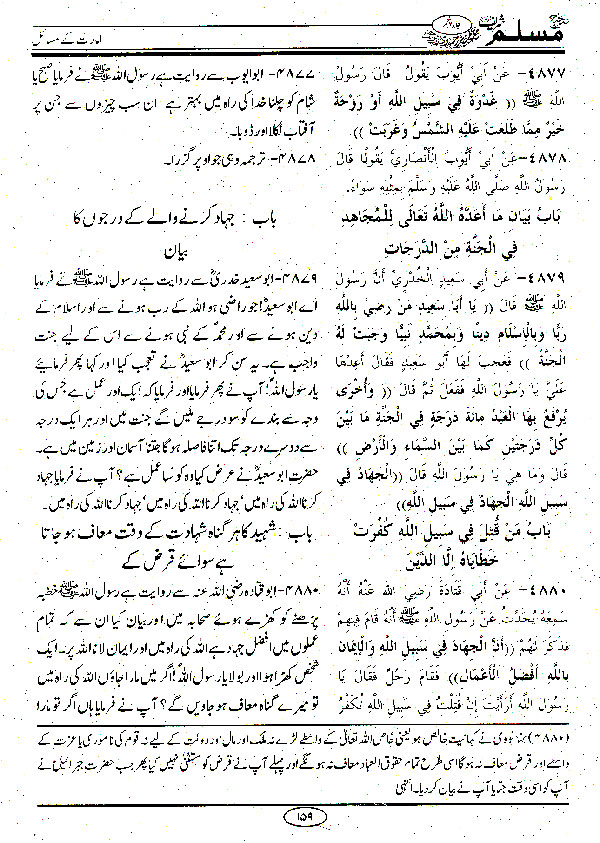 امارت کے مسائل
مسلم
۴۸۷۷- عَنْ أَبِي أَيُّوبَ يَقُولُ قَالَ رَسُولُ
اللهِ ﷺ (( غَدْوَةٌ فِي سَبِيلِ اللَّهِ أَوْ رَوْحَةٌ
خَيْرٌ مِمَّا طَلَعَتْ عَلَيْهِ الشَّمْسُ وَغَرَبَتْ )).
۴۸۷۸- عَنْ أَبِي أَيُّوبَ الْأَنْصَارِيِّ يَقُولُا قَالَ
رَسُولُ اللهِ صَلَّى اللهُ عَلَيْهِ وَسَلَّمَ بِمِثْلِهِ سَوَاءً.
بَابُ بَيَانِ مَا أَعَدَّهُ اللهُ تَعَالَى لِلْمُجَاهِدِ
فِي الْجَنَّةِ مِنَ الدَّرَجَاتِ
۴۸۷۹- عَنْ أَبِي سَعِيدٍ الْخُدْرِيِّ أَنَّ رَسُولَ
اللهِ ﷺ قَالَ (( يَا أَبَا سَعِيدٍ مَنْ رَضِيَ بِاللهِ
رَبًّا وَبِالْإِسْلَامِ دِينًا وَبِمُحَمَّدٍ نَبِيًّا وَجَبَتْ لَهُ
الْجَنَّةُ )) فَعَجِبَ لَهَا أَبُو سَعِيدٍ فَقَالَ أَعِدْهَا
عَلَيَّ يَا رَسُولَ اللهِ فَفَعَلَ ثُمَّ قَالَ (( وَأُخْرَى
يُرْفَعُ بِهَا الْعَبْدُ مِائَةَ دَرَجَةٍ فِي الْجَنَّةِ مَا بَيْنَ
كُلِّ دَرَجَتَيْنِ كَمَا بَيْنَ السَّمَاءِ وَالْأَرْضِ ))
قَالَ وَمَا هِيَ يَا رَسُولَ اللهِ قَالَ (( الْجِهَادُ فِي
سَبِيلِ اللهِ الْجِهَادُ فِي سَبِيلِ اللهِ))
بَابُ مَنْ قُتِلَ فِي سَبِيلِ اللهِ كُفِّرَتْ
خَطَايَاهُ إِلَّا الدَّيْنَ
۴۸۸۰- عَنْ أَبِي قَتَادَةَ رَضِيَ اللهُ عَنْهُ أَنَّهُ
سَمِعَهُ يُحَدِّثُ عَنْ رَسُولِ اللهِ ﷺ أَنَّهُ قَامَ فِيهِمْ
فَذَكَرَ لَهُمْ (( أَنَّ الْجِهَادَ فِي سَبِيلِ اللهِ وَالْإِيمَانَ
بِاللهِ أَفْضَلُ الْأَعْمَالِ)) فَقَامَ رَجُلٌ فَقَالَ يَا
رَسُولَ اللهِ أَرَأَيْتَ إِنْ قُتِلْتُ فِي سَبِيلِ اللهِ تُكَفَّرُ
۴۸۷۷- ابو ایوب سے روایت ہے رسول اللہ ﷺ نے فرمایا صبح یا
شام کو چلنا خدا کی راہ میں بہتر ہے ان سب چیزوں سے جن پر
آفتاب نکلا اور ڈوبا۔
۴۸۷۸- ترجمہ وہی جو اوپر گزرا۔
باب : جہاد کرنے والے کے درجوں کا
بیان
۴۸۷۹- ابو سعید خدریؓ سے روایت ہے رسول اللہ ﷺ نے فرمایا
اے ابو سعید! جو راضی ہو اللہ کے رب ہونے سے اور اسلام کے
دین ہونے سے اور محمدؐ کے نبی ہونے سے اس کے لیے جنت
واجب ہے۔ یہ سن کر ابو سعیدؓ نے تعجب کیا اور کہا پھر فرمایئے
یا رسول اللہ! آپ نے پھر فرمایا اور فرمایا کہ ایک اور عمل ہے جس کی
وجہ سے بندے کو سو درجے ملیں گے جنت میں اور ہر ایک درجہ
سے دوسرے درجہ تک اتنا فاصلہ ہوگا جتنا آسمان اور زمین میں ہے۔
حضرت ابو سعیدؓ نے عرض کیا وہ کونسا عمل ہے؟ آپ نے فرمایا جہاد
کرنا اللہ کی راہ میں، جہاد کرنا اللہ کی راہ میں، جہاد کرنا اللہ کی راہ میں۔
باب : شہید کا ہر گناہ شہادت کے وقت معاف ہو جاتا
ہے سوائے قرض کے
۴۸۸۰- ابو قتادہ رضی اللہ عنہ سے روایت ہے رسول اللہ ﷺ خطبہ
پڑھنے کو کھڑے ہوئے صحابہ میں اور بیان کیا ان سے کہ تمام
عملوں میں افضل جہاد ہے اللہ کی راہ میں اور ایمان لانا اللہ پر۔ ایک
شخص کھڑا ہوا اور بولا یا رسول اللہ! اگر میں مارا جاؤں اللہ کی راہ میں
تو میرے گناہ معاف ہو جاویں گے؟ آپ نے فرمایا ہاں اگر تو مارا
(۴۸۸۰) نووی نے کہا نیت خالص ہو یعنی خاص اللہ تعالیٰ کے واسطے لڑے نہ ملک اور مال اور دولت کے لیے نہ قوم کی ناموری یا عزت کے
واسطے اور قرض معاف نہ ہوگا اسی طرح تمام حقوق العباد معاف نہ ہونگے اور پہلے آپ نے قرض کو مستثنیٰ نہیں کیا پھر جب حضرت جبرائیلؑ نے
آپ کو اسی وقت بتایا آپ نے بیان کر دیا۔ انتہیٰ
۱۵۹